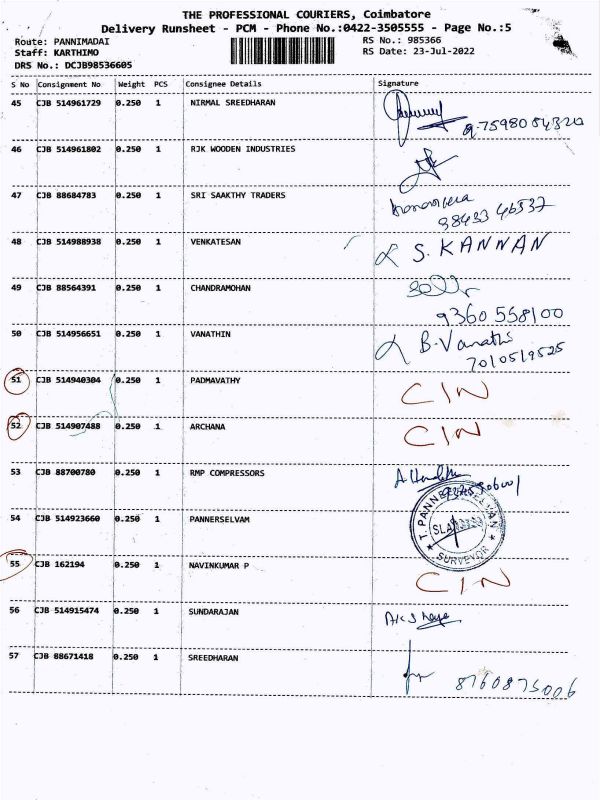 THE PROFESSIONAL COURIERS, Coimbatore
Delivery Runsheet - PCM - Phone No.:0422-3505555 - Page No.:5
Route: PANNIMADAI
RS No.: 985366
Staff: KARTHIMO
RS Date: 23-Jul-2022
DRS No.: DCJB98536605
S No Consignment No Weight PCS Consignee Details Signature
45 CJB 514961729 0.250 1 NIRMAL SREEDHARAN
46 CJB 514961802 0.250 1 RJK WOODEN INDUSTRIES
47 CJB 88684783 0.250 1 SRI SAAKTHY TRADERS
98433 46537
48 CJB 514988938 0.250 1 VENKATESAN S. KANNAN
49 CJB 88564391 0.250 1 CHANDRAMOHAN
9360 558100
50 CJB 514956651 0.250 1 VANATHIN B. Vanathi
7010519525
51 CJB 514940304 0.250 1 PADMAVATHY CIN
52 CJB 514907488 0.250 1 ARCHANA CIN
53 CJB 88700780 0.250 1 RMP COMPRESSORS
54 CJB 514923660 0.250 1 PANNERSELVAM T. PANNEERSELVAN
SURVEYOR
55 CJB 162194 0.250 1 NAVINKUMAR P CIN
56 CJB 514915474 0.250 1 SUNDARAJAN
57 CJB 88671418 0.250 1 SREEDHARAN
8760875006